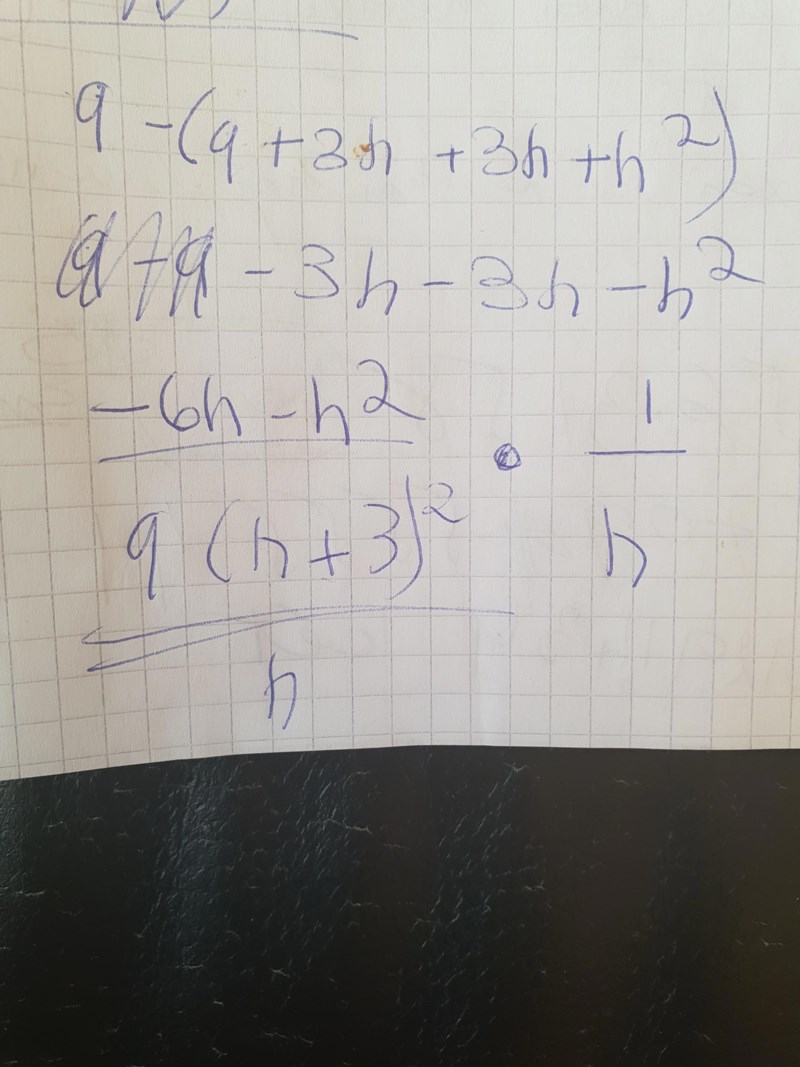 9 - (9 + 3h + 3h + h²)
9 - 9 - 3h - 3h - h²
-6h - h² • 1
9 (h + 3)² h
h